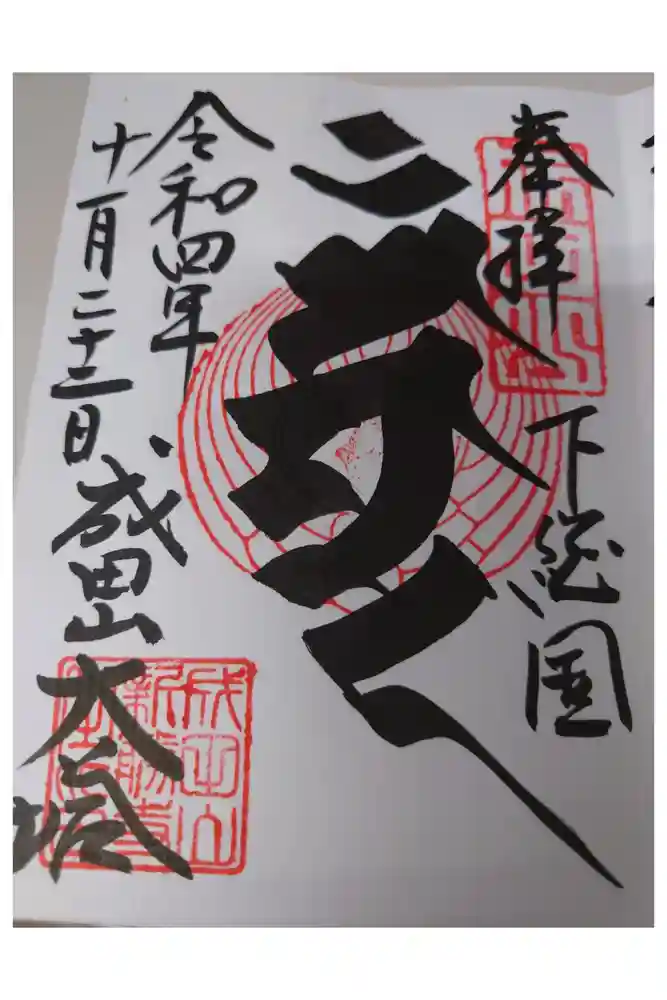 奉拝
下総国
令和四年
十一月二十三日
成田山
大塔
成田山
新勝寺